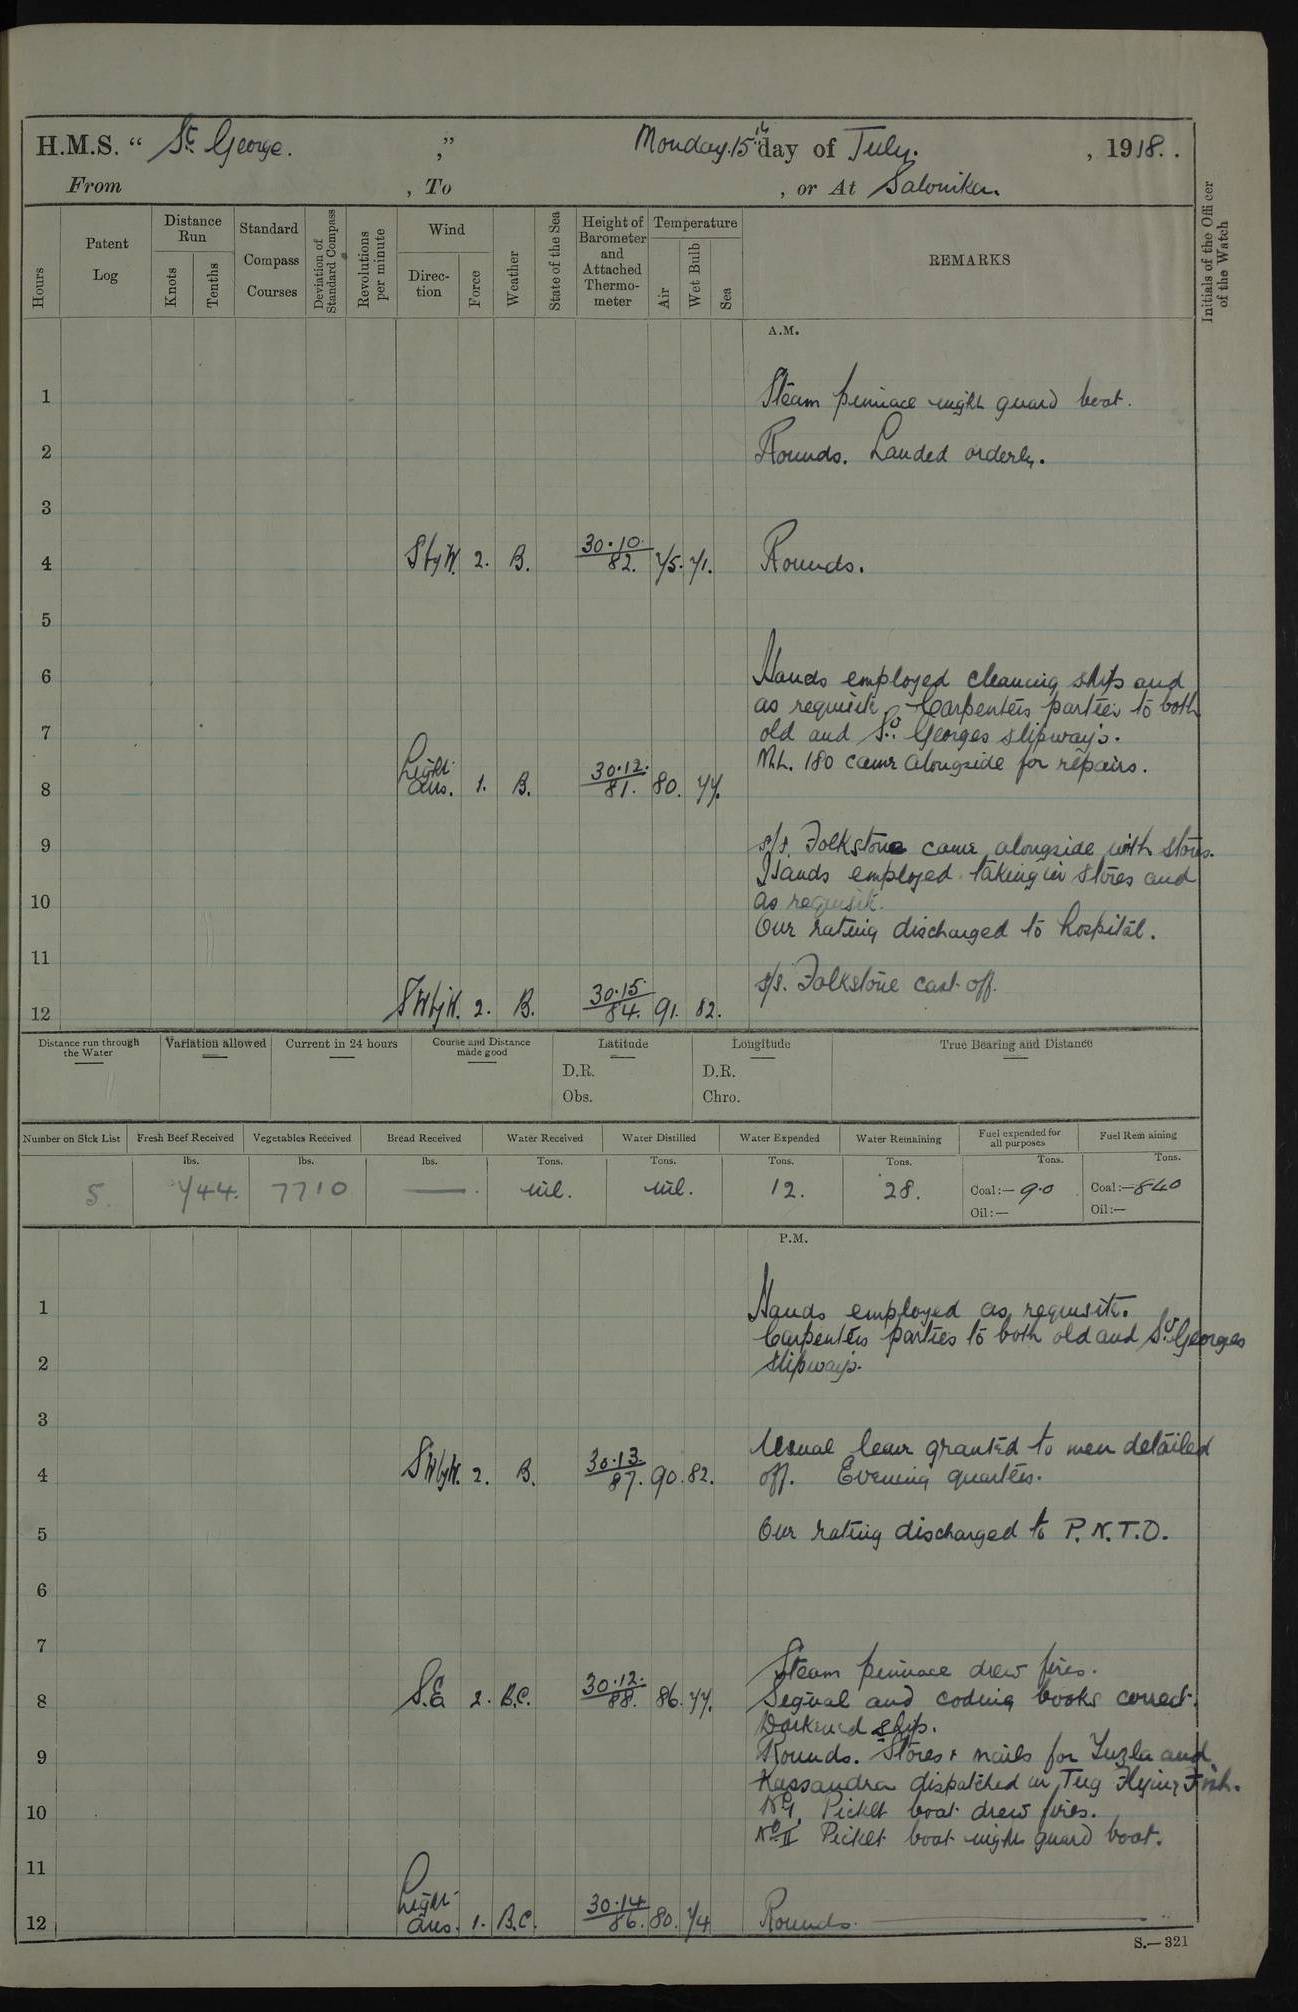 H.M.S. “ St. George. ,” Monday 15th day of July. , 1918. .
From , To , or At Salonika.
Hours
Patent Log
Distance Run
Knots
Tenths
Standard Compass Courses
Deviation of Standard Compass
Revolutions per minute
Wind
Direction
Force
Weather
State of the Sea
Height of Barometer and Attached Thermometer
Temperature
Air
Wet Bulb
Sea
REMARKS
Initials of the Officer of the Watch
A.M.
1 Steam pinnace night guard boat.
2 Rounds. Landed orderly.
3
4 S by W. 2. B. 30.10. 82. 75. 71. Rounds.
5
6 Hands employed cleaning ship and
as requisite. Carpenters parties to both
7 old and St. Georges slipways.
M.L. 180 came alongside for repairs.
8 Light airs. 1. B. 30.12. 81. 80. 77.
9 s/s. Folkstone came alongside with stores.
Hands employed taking in stores and
10 as requisite.
One rating discharged to hospital.
11
s/s. Folkstone cast off.
12 SW by W. 2. B. 30.15. 84. 91. 82.
Distance run through the Water
Variation allowed
Current in 24 hours
Course and Distance made good
Latitude
D.R.
Obs.
Longitude
D.R.
Chro.
True Bearing and Distance
Number on Sick List
Fresh Beef Received
Vegetables Received
Bread Received
Water Received
Water Distilled
Water Expended
Water Remaining
Fuel expended for all purposes
Fuel Remaining
lbs. lbs. lbs. Tons. Tons. Tons. Tons. Tons. Tons.
5. 744. 7710 —. nil. nil. 12. 28. Coal:— 9.0 Coal:— 840
Oil:— Oil:—
P.M.
1 Hands employed as requisite.
Carpenters parties to both old and St. Georges
2 slipways.
3
Usual leave granted to men detailed
4 SW by W. 2. B. 30.13. 87. 90. 82. off. Evening quarters.
5 One rating discharged to P.N.T.O.
6
7
Steam pinnace drew fires.
8 S.E. 2. B.C. 30.12. 88. 86. 77. Signal and coding books correct.
Darkened ship.
9 Rounds. Stores & mails for Tuzla and
Kassandra dispatched in Tug Flying Fish.
10 No. 1. Picket boat drew fires.
No. II Picket boat night guard boat.
11
12 Light airs. 1. B.C. 30.14 86. 80. 74 Rounds.
S.—321